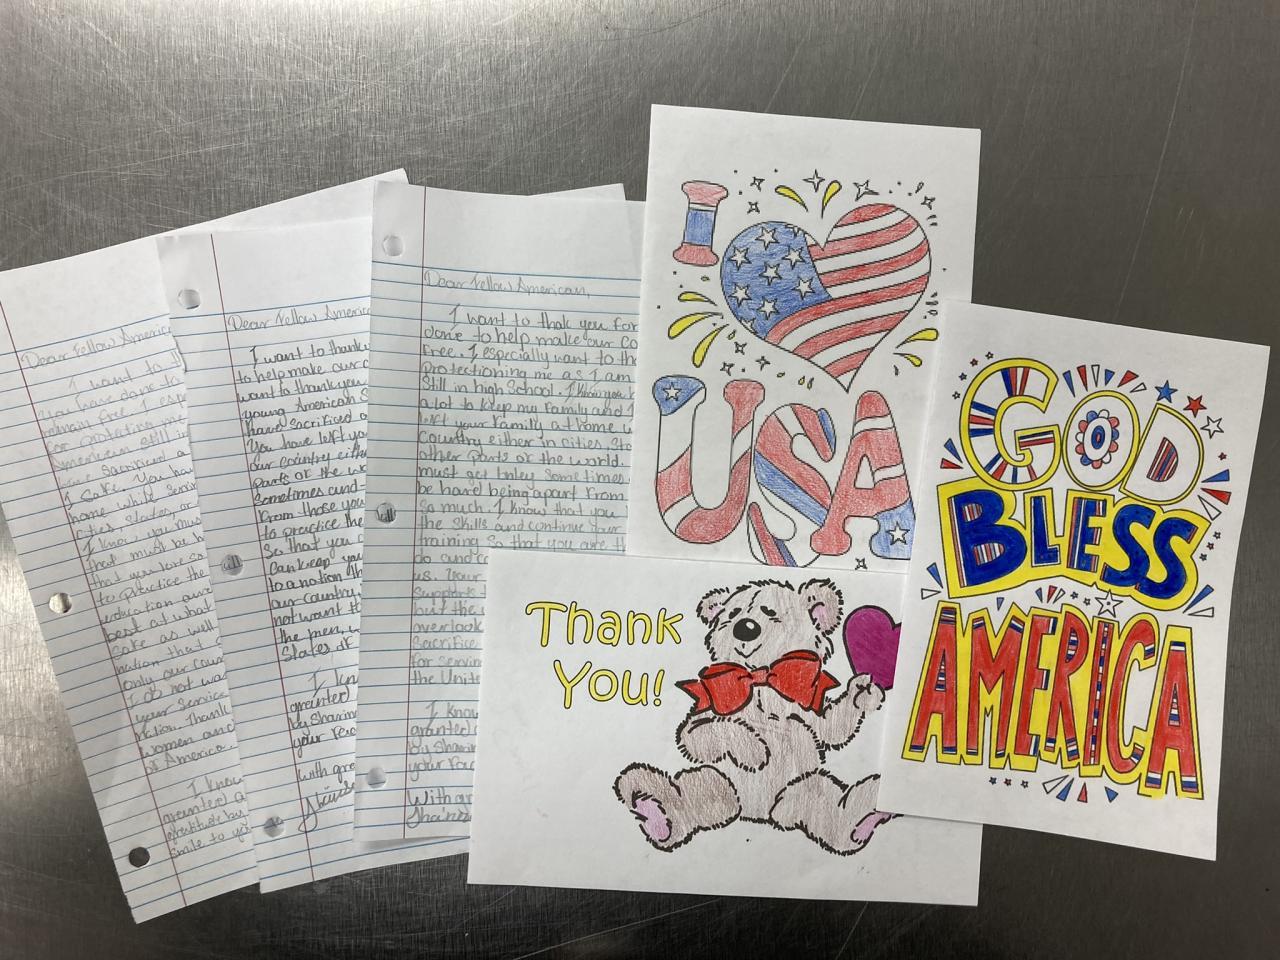 Dear Fellow America
I want to
you have done to
remain free. I esp
for protecting me
American still in
have sacrificed a
's sake. You ha
home while servin
cities, states, or
I know you mus
that must be h
that you love so
to practice the
education and
best at what
sake as well
nation that
only our coun
I do not wa
your service
nation. Thank
women and
of America.
I know
granted a
gratitude by
smile to yo
Dear Fellow Americ
I want to thank
to help make our c
want to thank you
young American S
have sacrificed a
You have left yo
our country eithe
parts of the wo
sometimes and
from those you
to practice the
So that you c
can keep you
to a nation th
our country
not want t
the men, w
States of
I kn
granted
by sharin
your fac
with gra
Dear Fellow American,
I want to thak you for
done to help make our co
free. I especially want to th
protectioning me as I am
Still in high School. I know you
a lot to keep my family and
left your family at home w
Country either in cities, Sta
other parts or the world.
must get lonley some times
be hard being apart from
so much. I know that you
the skills and continue your
training so that you are th
do and c
us. Your
support
but the
overlook
Sacrifice
for servin
the Unite
I Know
granted
by Sharin
your fac
With gr
I
USA
Thank
You!
GOD
BLESS
AMERICA